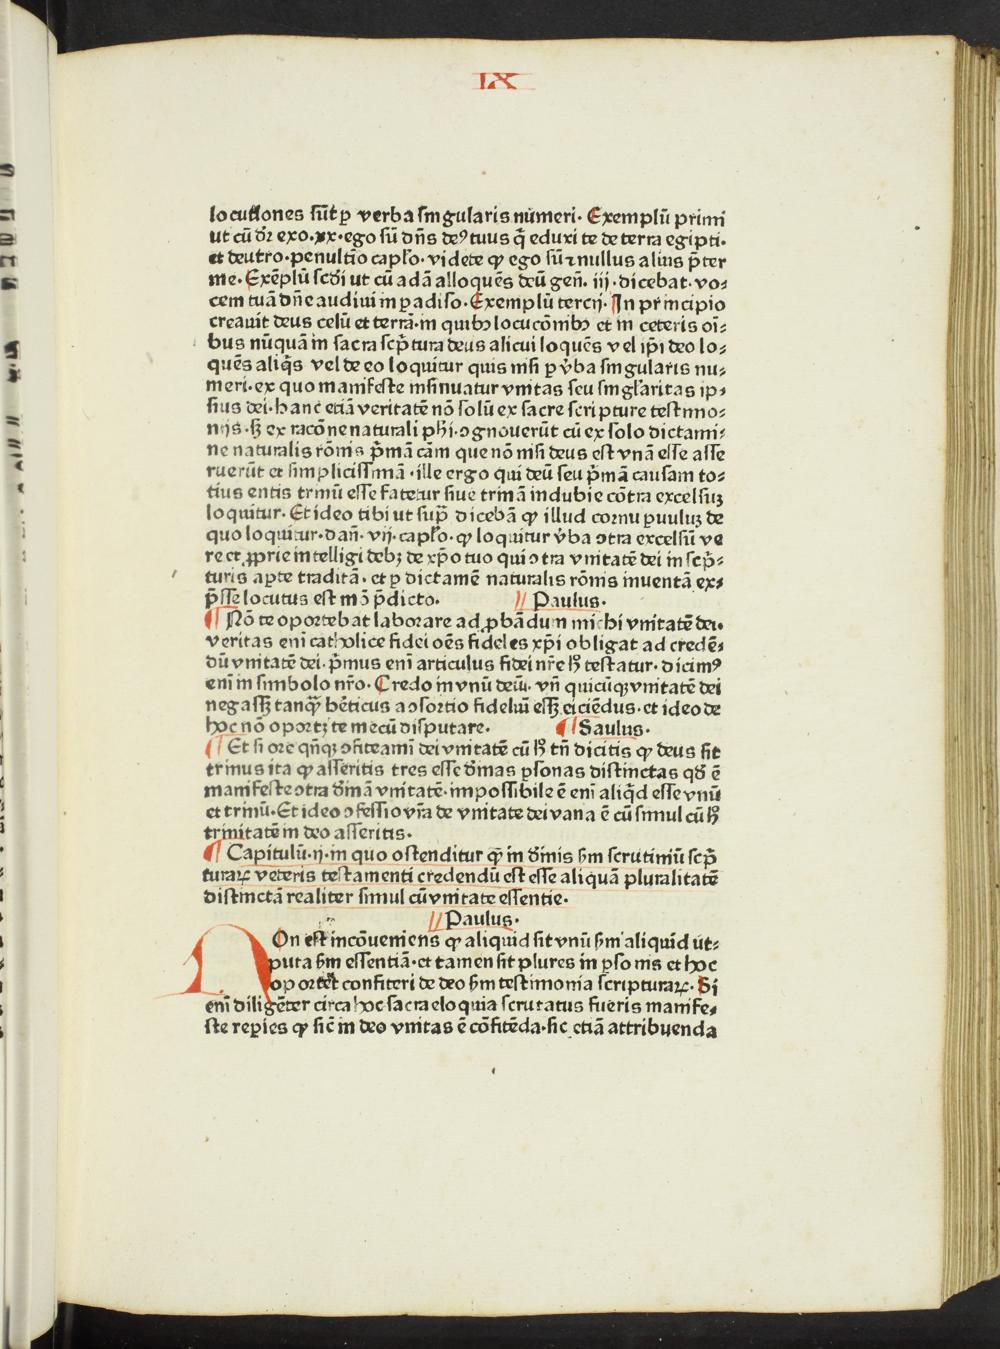 IX
locutiones sūt ꝑ verba singularis numeri. Exemplū primi
ut cū dr̄ exo. xx. ego sū dn̄s deꝰ tuus q̄ eduxi te de terra egipti.
et deutro. penultīo capl̄o. videte ꝙ ego sū ⁊ nullus alius p̄ter
me. Exēplū scd̄i ut cū adā alloquēs deū gen̄. iij. dicebat. vo⸗
cem tuā dn̄e audiui in ꝑadiso. Exemplū tercij. ¶ In principio
creauit deus celū et terrā. in quibꝫ locucōnibꝫ et in ceteris oī⸗
bus nūquā in sacra scp̄tura deus alicui loquēs vel ip̄i deo lo⸗
quēs aliq̄s vel de eo loquitur quis nisi ꝑ v̄ba singularis nu⸗
meri. ex quo manifeste insinuatur vnitas seu singl̄aritas ip⸗
sius dei. hanc etiā veritatē nō solū ex sacre scripture testimo⸗
nijs. sꝫ ex racōne naturali ph̄i. ꝯgnouerūt cū ex solo dictami⸗
ne naturalis rōnis p̄mā cām que nō nisi deus est vnā esse asse
ruerūt et simplicissimā. ille ergo qui deū seu p̄mā causam to⸗
tius entis trinū esse fatetur siue trinā indubie cōtra excelsuꝫ
loquitur. Et ideo tibi ut sup̄ dicebā ꝙ illud cornu ꝑuuluꝫ de
quo loquitur. dan̄. vij. capl̄o. ꝙ loquitur v̄ba ꝯtra excelsū ve
re et ꝓprie intelligi debꝫ de xp̄o tuo qui ꝯtra vnitatē dei in scp̄⸗
turis aꝑte traditā. et ꝑ dictamē naturalis rōnis inuentā ex⸗
p̄sse locutus est mō p̄dicto. // Paulus.
¶ Nō te oportebat laborare ad ꝓbādum michi vnitatē dei.
veritas enī catholice fidei oēs fideles xp̄i obligat ad credē⸗
dū vnitatē dei. p̄mus enī articulus fidei nr̄e hͦ testatur. dicimꝰ
enī in simbolo nr̄o. Credo in vnū deū. vn̄ quicūqꝫ vnitatē dei
negasꝫ tanq̄ h̄eticus a ꝯsortio fideliū essꝫ eiciēdus. et ideo de
hoc nō oportꝫ te mecū disputare. ¶ Saulus.
¶ Et si ore qn̄qꝫ ꝯfiteamī dei vnitatē cū hͦ tn̄ dicitis ꝙ deus sit
trinus ita ꝙ asseritis tres esse dīnas ꝑsonas distinctas qd̄ ē
manifeste ꝯtra dīnā vnitatē. impossibile ē enī aliq̄d esse vnū
et trinū. Et ideo ꝯfessio vr̄a de vnitate dei vana ē cū simul cū hͦ
trinitatē in deo asseritis.
¶ Capitulū. ij. in quo ostenditur ꝙ in dīnis s̄m scrutiniū scp̄
turaꝝ veteris testamenti credendū est esse aliquā pluralitatē
distinctā realiter simul cū vnitate essentie.
// Paulus.
NOn est incōueniens ꝙ aliquid sit vnū s̄m aliquid ut⸗
puta s̄m essentiā. et tamen sit plures in ꝑsonis et hoc
oportet confiteri de deo s̄m testimonia scripturaꝝ. Si
enī diligēter circa hoc sacra eloquia scrutatus fueris manife⸗
ste reꝑies ꝙ sic̄ in deo vnitas ē cōfitēda. sic etiā attribuenda